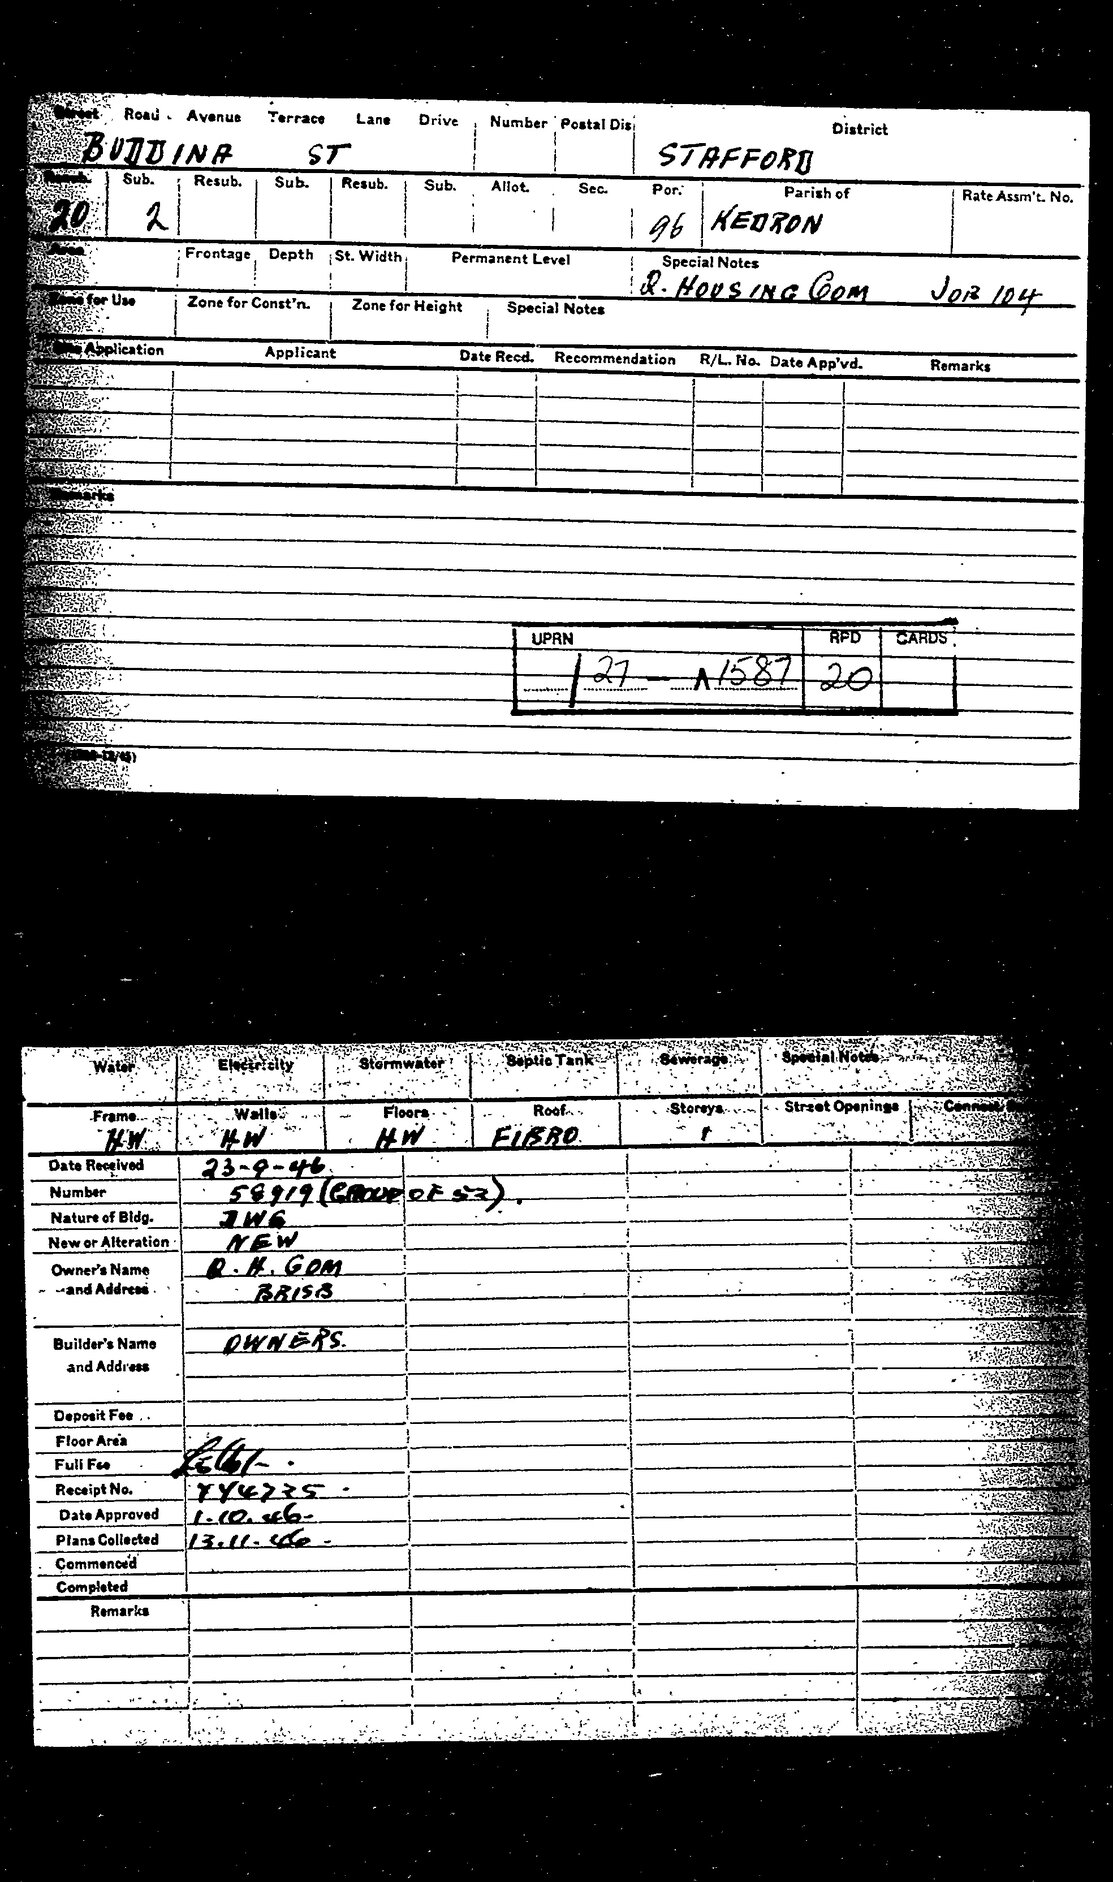 Street Road Avenue Terrace Lane Drive Number Postal Dis District
BUDDINA ST STAFFORD
Resub. Sub. Resub. Sub. Resub. Sub. Allot. Sec. Por. Parish of Rate Assm't. No.
20 2 96 KEDRON
Area Frontage Depth St. Width Permanent Level Special Notes
Q. HOUSING COM JOB 104
Zone for Use Zone for Const'n. Zone for Height Special Notes
Site Application Applicant Date Recd. Recommendation R/L. No. Date App'vd. Remarks
Remarks
UPRN RPD CARDS
/ 27 — ∧1587 20
Water Electricity Stormwater Septic Tank Sewerage Special Notes
Frame Walls Floors Roof Storeys Street Openings
HW HW HW FIBRO 1
Date Received 23-9-46
Number 58919 (GROUP OF 52).
Nature of Bldg. DWG
New or Alteration NEW
Owner's Name Q. H. COM
and Address BRISB
Builder's Name OWNERS.
and Address
Deposit Fee
Floor Area
Full Fee
Receipt No. YY4735
Date Approved 1.10.46
Plans Collected 13.11.46
Commenced
Completed
Remarks